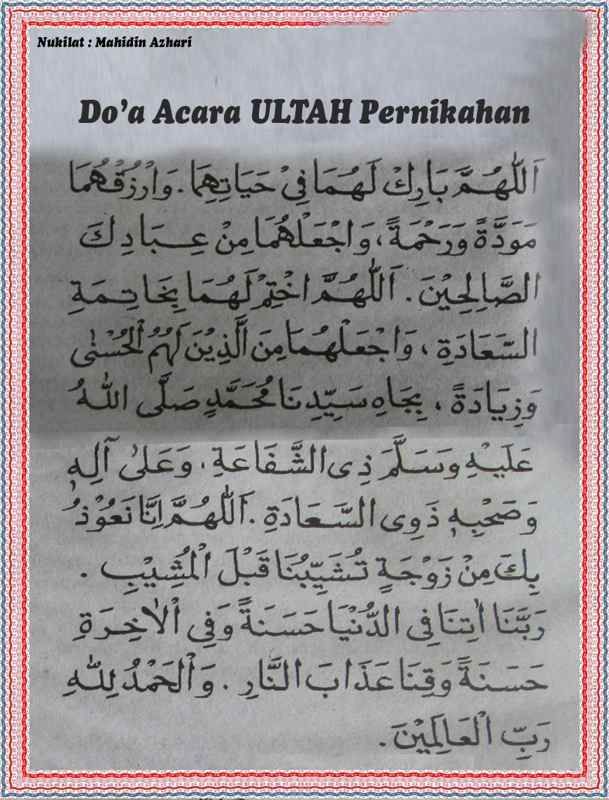 Nukilat : Mahidin Azhari
Do'a Acara ULTAH Pernikahan
اَللّٰهُمَّ بَارِكْ لَهُمَا فِيْ حَيَاتِهِمَا. وَارْزُقْهُمَا
مَوَدَّةً وَرَحْمَةً، وَاجْعَلْهُمَا مِنْ عِبَادِكَ
الصَّالِحِيْنَ. اَللّٰهُمَّ اخْتِمْ لَهُمَا بِخَاتِمَةِ
السَّعَادَةِ، وَاجْعَلْهُمَا مِنَ الَّذِيْنَ لَهُمُ الْحُسْنٰى
وَزِيَادَةً، بِجَاهِ سَيِّدِنَا مُحَمَّدٍ صَلَّى اللّٰهُ
عَلَيْهِ وَسَلَّمَ ذِى الشَّفَاعَةِ، وَعَلٰى آلِهٖ
وَصَحْبِهٖ ذَوِى السَّعَادَةِ. اَللّٰهُمَّ اِنَّا نَعُوْذُ
بِكَ مِنْ زَوْجَةٍ تُشَيِّبُنَا قَبْلَ الْمُشِيْبِ.
رَبَّنَا اٰتِنَا فِى الدُّنْيَا حَسَنَةً وَفِى اْلاٰخِرَةِ
حَسَنَةً وَقِنَا عَذَابَ النَّارِ. وَالْحَمْدُ لِلّٰهِ
رَبِّ الْعَالَمِيْنَ.